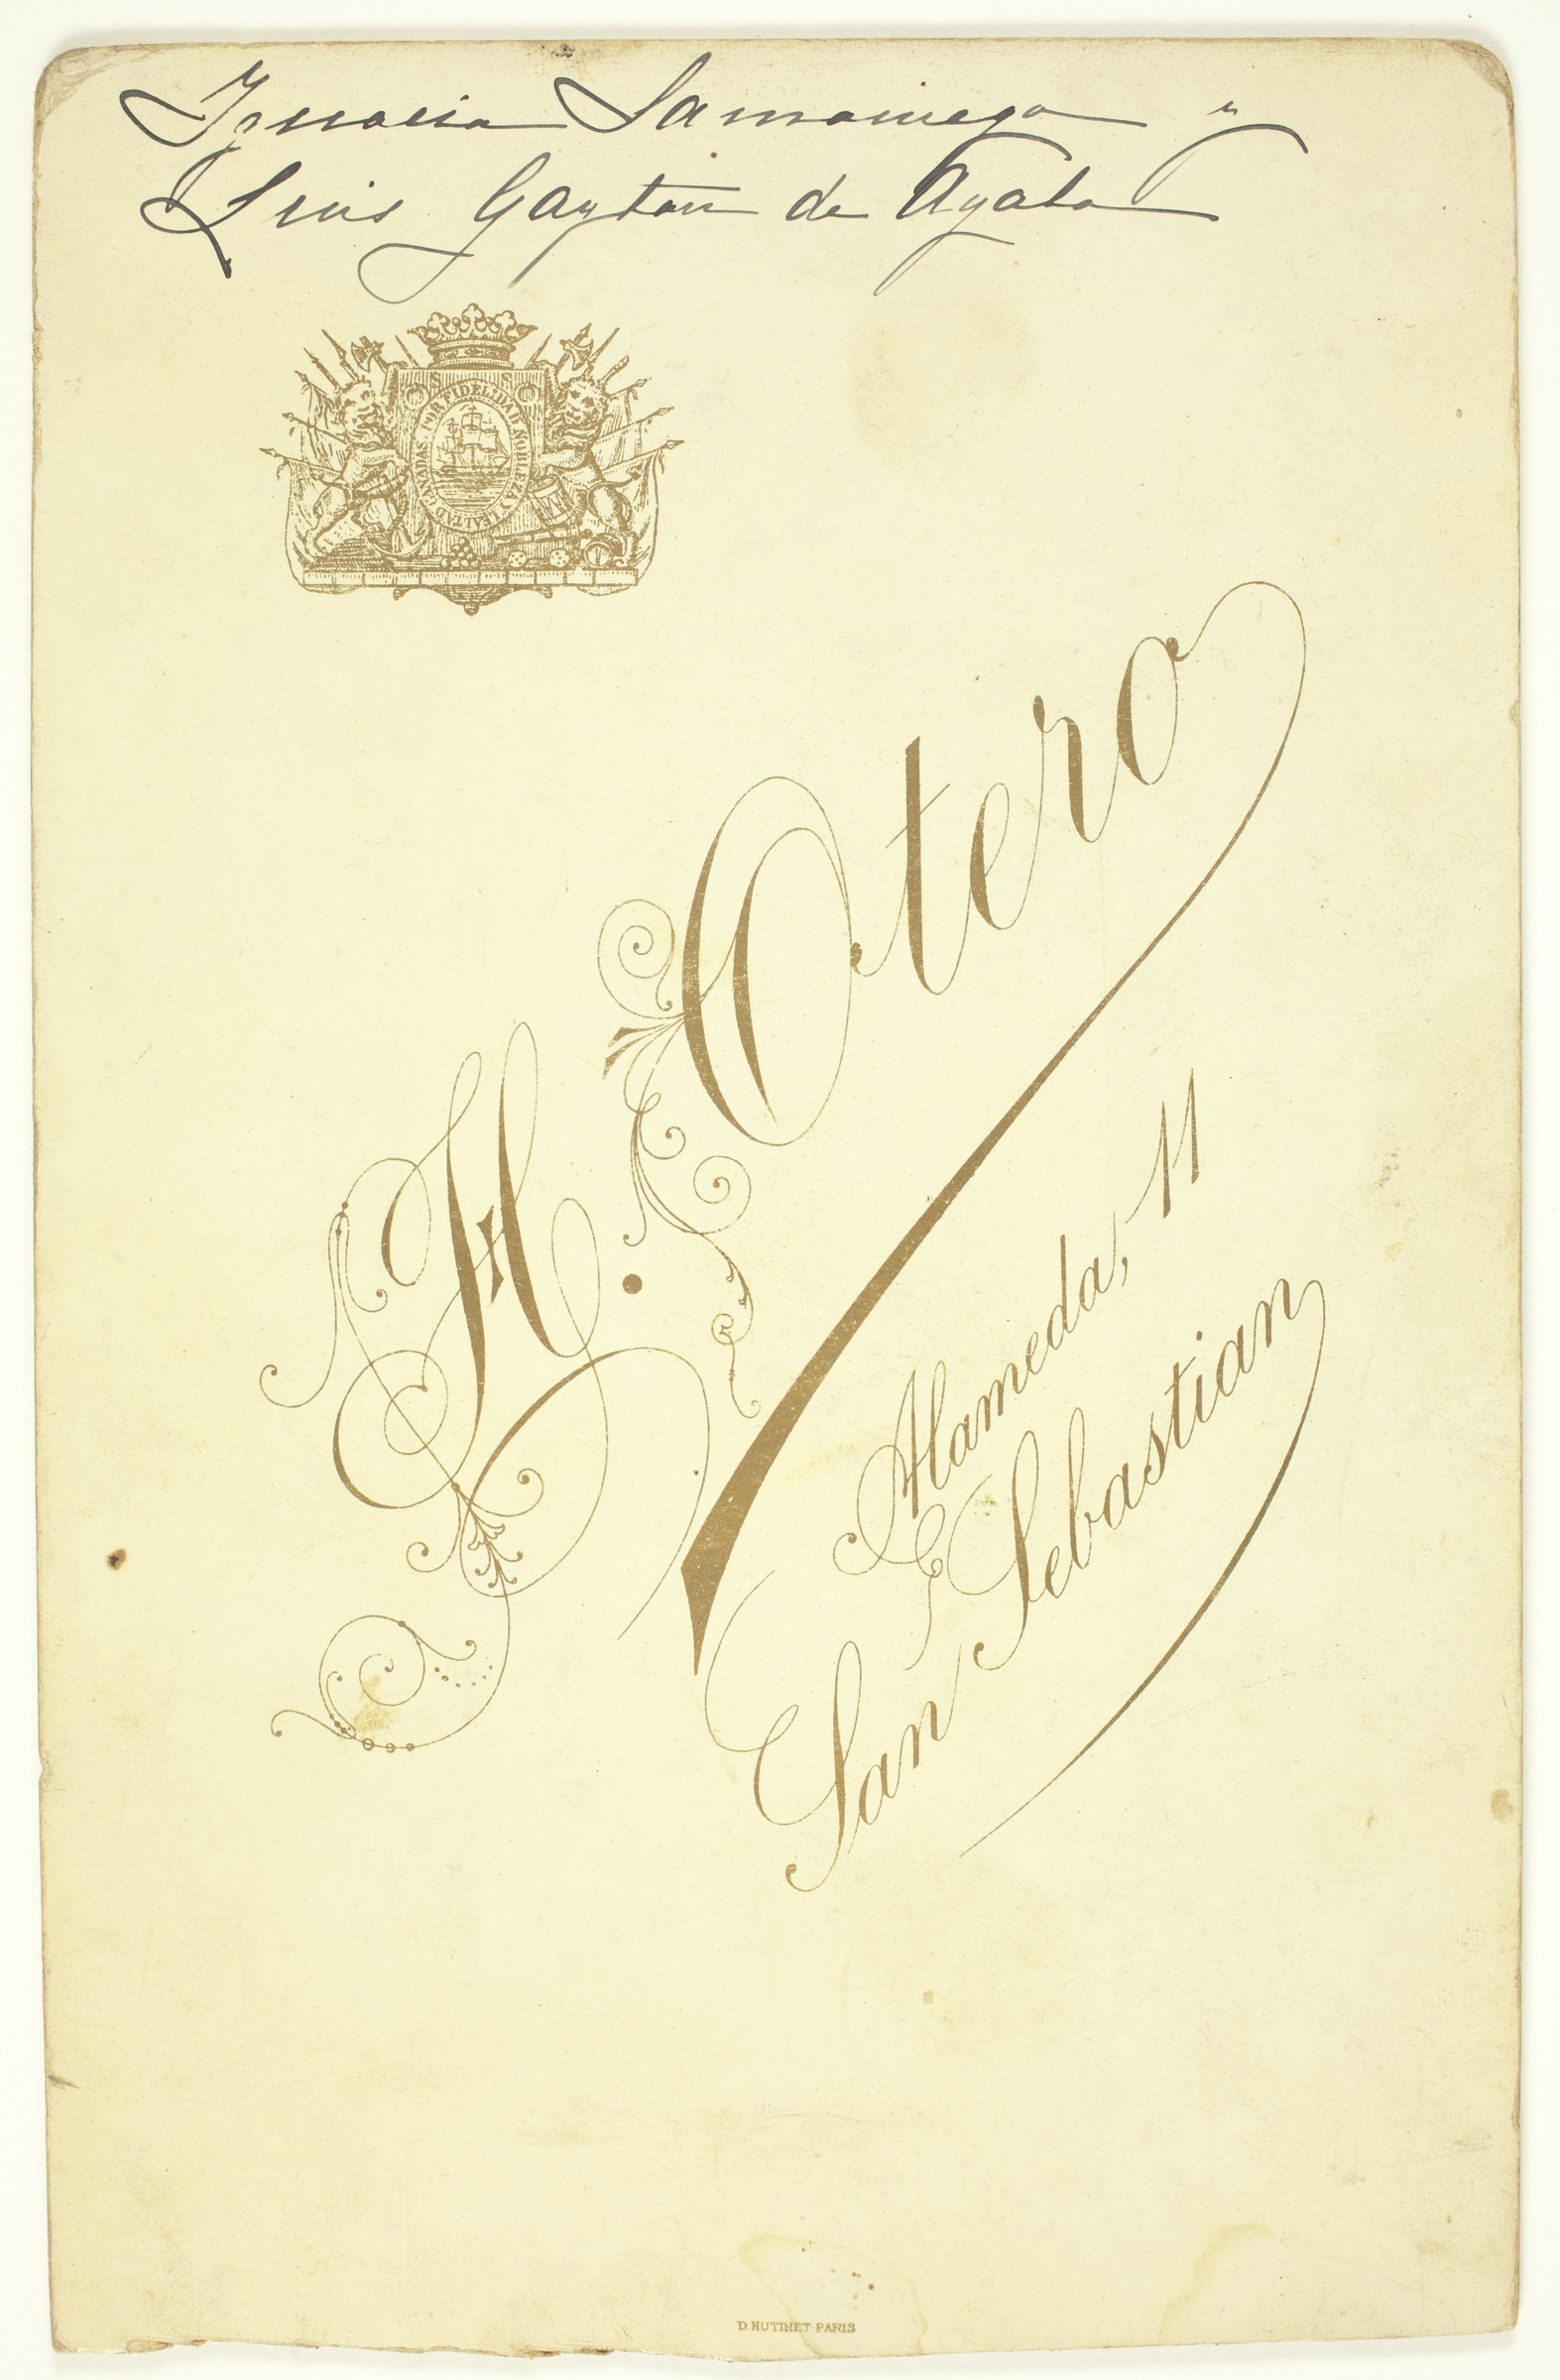 Ignacia Samaniego y
Luis Gaytan de Ayala
S S
GANADAS POR FIDELIDAD NOBLEZA Y LEALTAD
H. Otero
Alameda, 11
San Sebastian
D. HUTINET PARIS